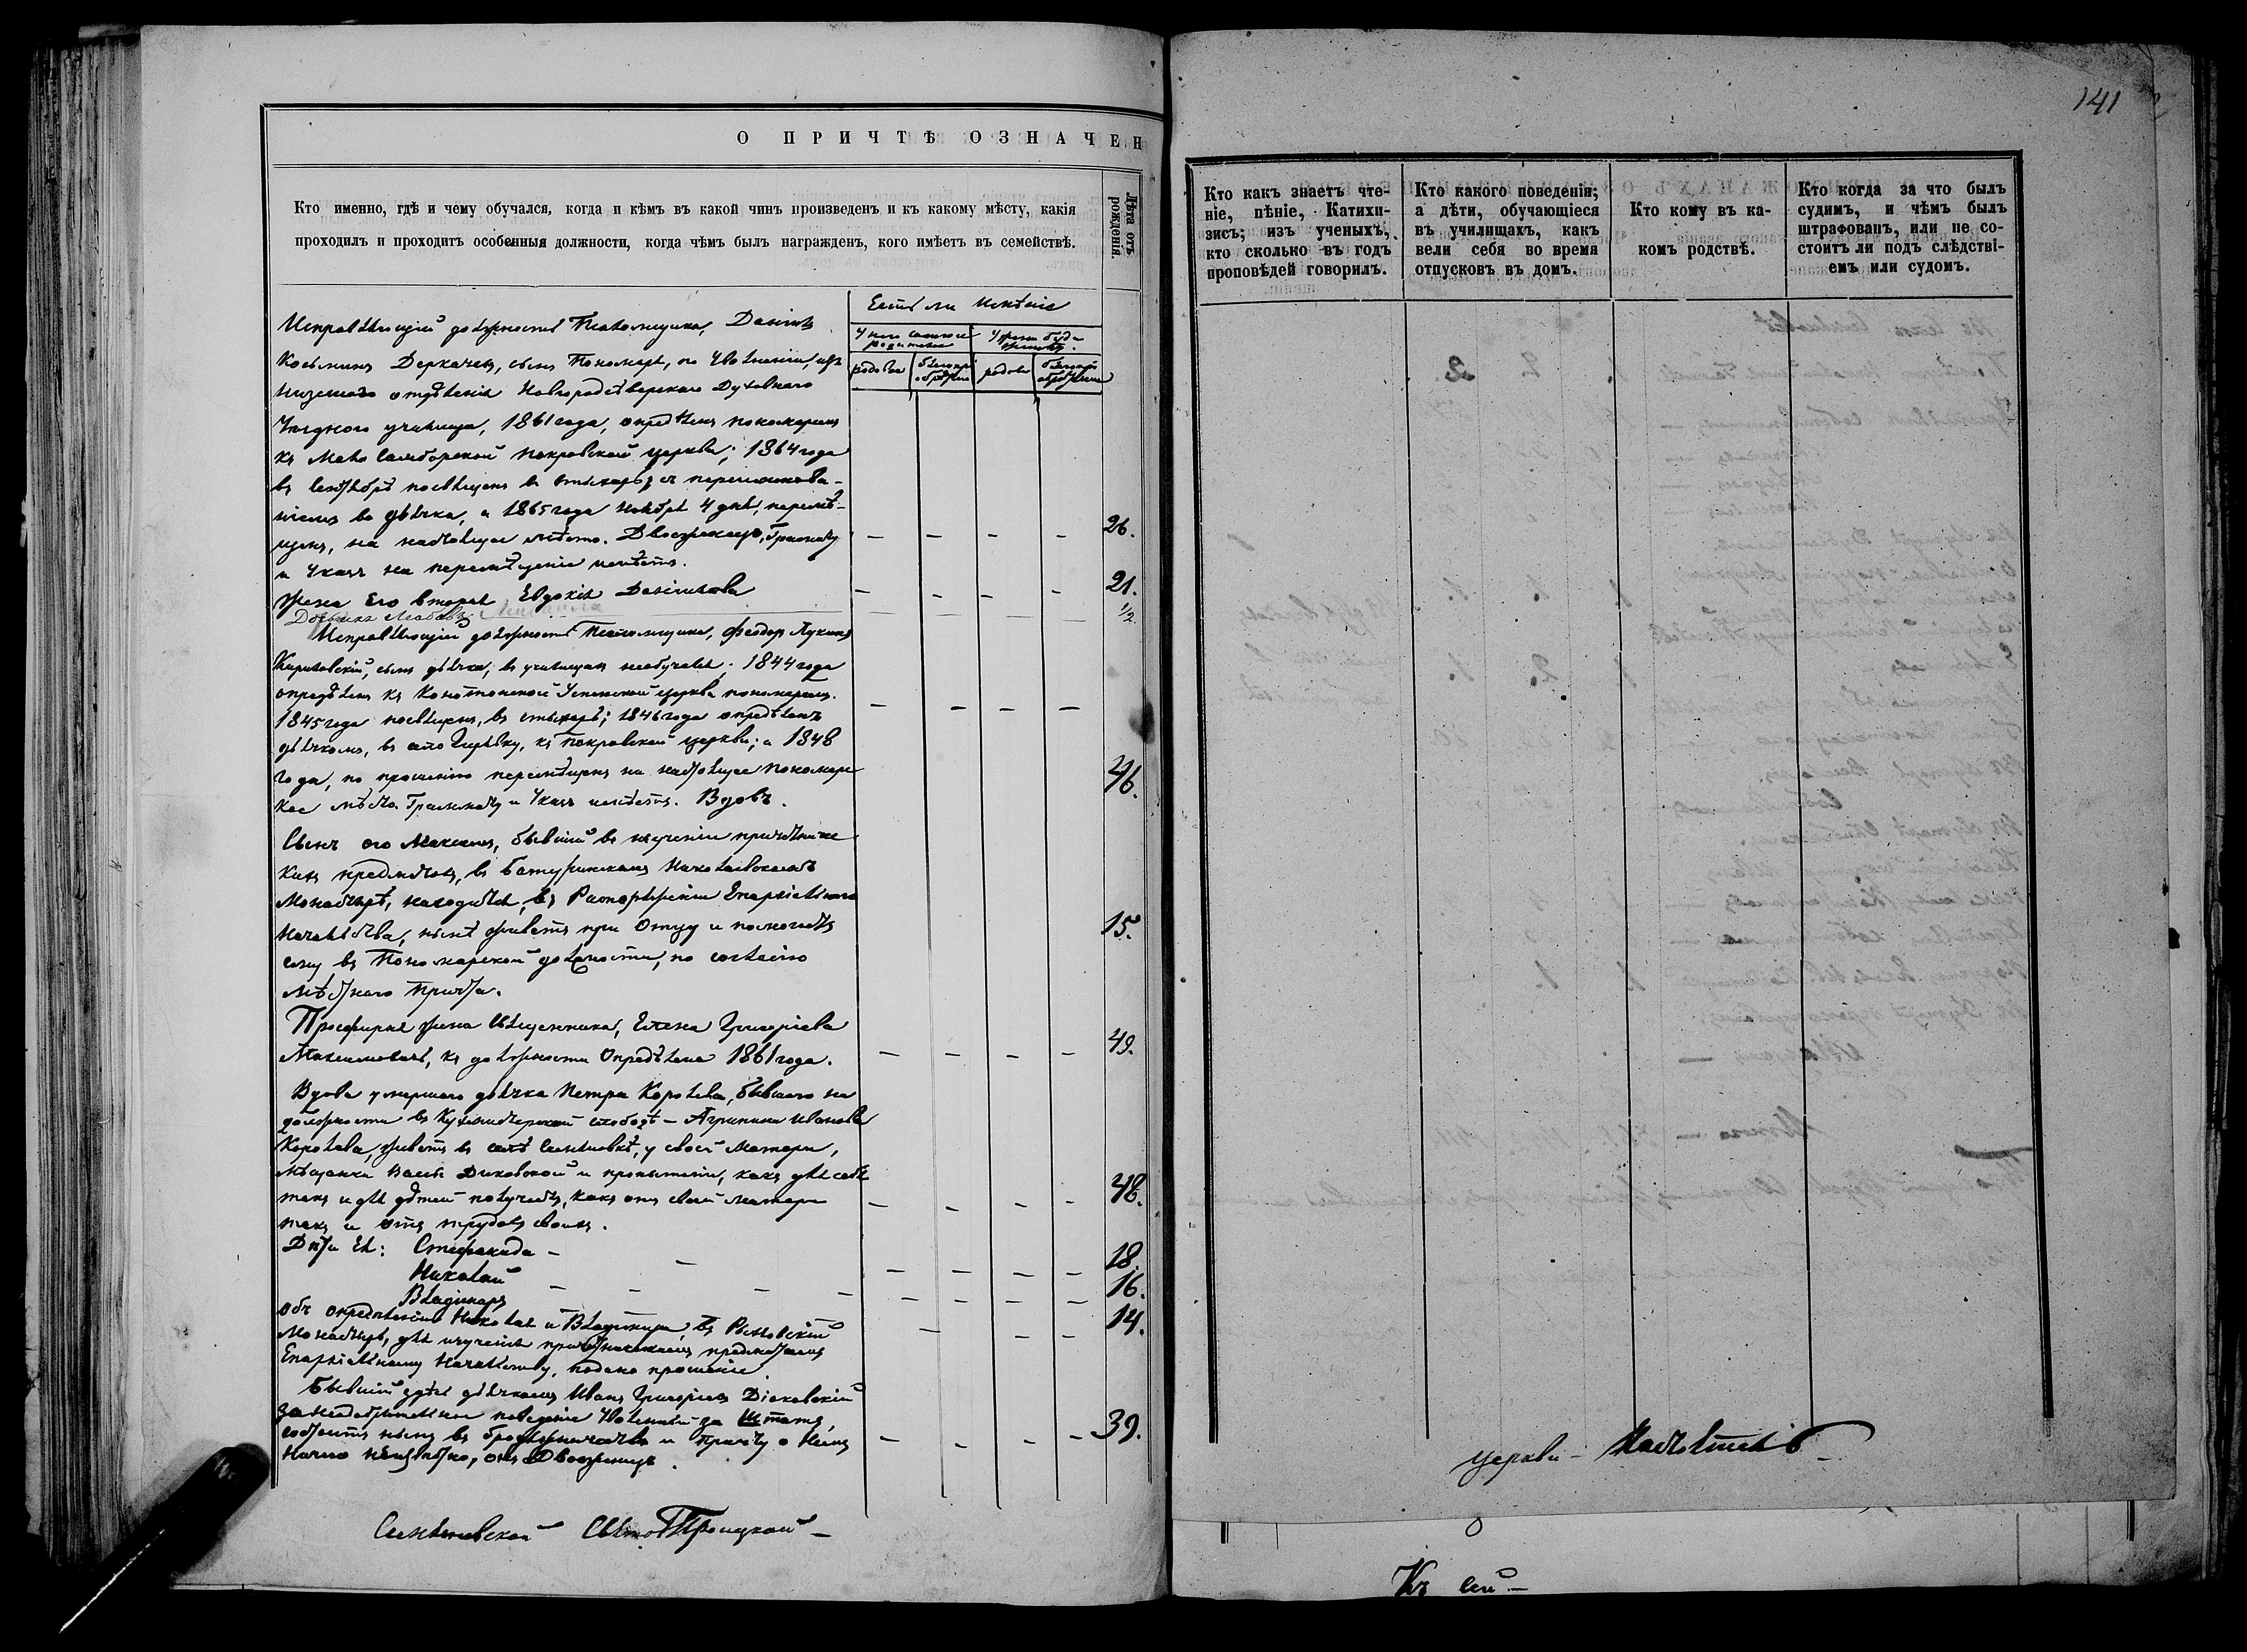 141
О ПРИЧТѢ ОЗНАЧЕН
Кто именно, гдѣ и чему обучался, когда и кѣмъ въ какой чинъ произведенъ и къ какому мѣсту, какія
проходилъ и проходитъ особенныя должности, когда чѣмъ былъ награжденъ, кого имѣетъ въ семействѣ.
Лѣта отъ
рожденія.
Есть ли имѣніе
родовое
родовое
Исправляющій должность Псаломщика, Даніилъ
Косьминъ Деркачевъ, сынъ Пономаря, по уволненіи, изъ
низшаго отдѣленія Новгородсѣверскаго Духовнаго
Уѣзднаго училища, 1861 года, опредѣленъ пономаремъ
къ Мало Самборской Покровской церкви; 1864 года
въ Сентябрѣ посвященъ въ стихарь, съ переименова-
ніемъ во дьячка, а 1865 года Ноября 4 дня, перемѣ-
щенъ, на настоящее мѣсто. Двоеженецъ, Грамату
и Указъ на перемѣщеніе имѣетъ.
26.
Жена Его вторая Евдокія Даніилова
21.
Дочь ихъ Любовь
1/2
Исправляющій должность Псаломщика, Феодоръ Лукинъ
сынъ дьячка; въ училищахъ необучался. 1844 года
опредѣленъ къ Конотопской Успенской церкви пономаремъ.
1845 года посвященъ, въ стихарь; 1846 года опредѣленъ
дьячкомъ, въ село Гирявку, къ Покровской церкви; а 1848
года, по прошенію перемѣщенъ на настоящее пономарс
кое мѣсто. Граммату и Указъ имѣетъ. Вдовъ.
46.
Сынъ его Максимъ, бывшій въ изученіи причетниче
кихъ предметовъ, въ Батуринскомъ Николаевскомъ
Монастырѣ, находится, въ Распоряженіи Епархіальнаго
Начальства, нынѣ живетъ при Отцу и помогаетъ
ему въ Пономарской должности, по согласію
мѣстнаго Причта.
15.
Просфирня жена Священника, Елена Григоріева
къ должности Опредѣлена 1861 года.
49.
Вдова умершаго дьячка Петра Королева, бывшаго на
должности въ слободѣ – Агрипина Иванова
Королева, живетъ въ селѣ Семяновкѣ, у своей Матери,
Мѣщанки и пропитаніе, какъ для себя
такъ и для дѣтей получаетъ, какъ отъ своей матери
такъ и отъ трудовъ своихъ.
48.
Дѣти Ея: Стефанида –
18.
Николай
16.
Владимиръ
14.
Объ опредѣленіи Николая и Владимира, въ Рыхловскій
Монастырь, для изученія причетническихъ предметовъ
Епархіальному Начальству, подано прошеніе.
Бывшій здѣсь дьячкомъ Иванъ Григорьевъ Діаковскій
за неодобрительное поведеніе Уволенный за Штатъ,
состоитъ нынѣ въ бродяжничествѣ и Причту о Немъ
ничего неизвѣстно, онъ Двоеженецъ.
39.
Семяновской Свято Троицкой –
Кто какъ знаетъ чте-
ніе, пѣніе, Катихи-
зисъ; изъ ученыхъ,
кто сколько въ годъ
проповѣдей говорилъ.
Кто какого поведенія;
а дѣти, обучающіеся
въ училищахъ, какъ
вели себя во время
отпусковъ въ домъ.
Кто кому въ ка-
комъ родствѣ.
Кто когда за что былъ
судимъ, и чѣмъ былъ
штрафованъ, или не со-
стоитъ ли подъ слѣдствi-
емъ или судомъ.
церкви – Настоятель
Къ сей –